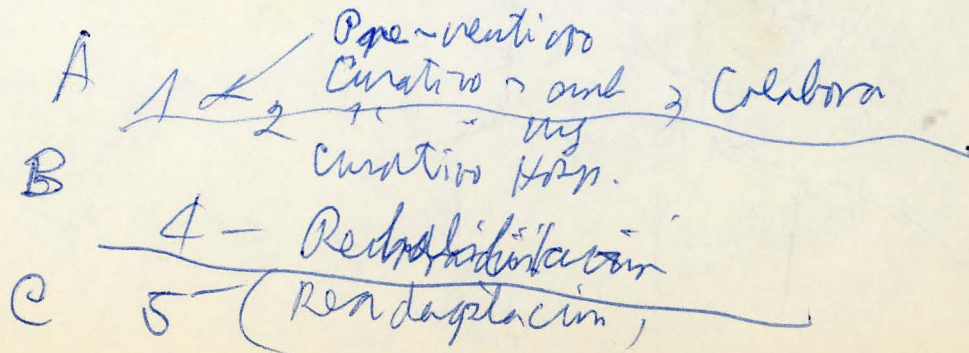 Pre-ventivo
A 1 Curativo amb 3 Colabora
2 " " urg
B Curativo Hosp.
4 - Rehabilitación
C 5 - (Readaptación,